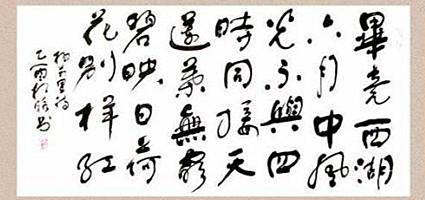 畢竟西湖
六月中風
光不與四
時同接天
蓮葉無窮
碧映日荷
花別樣紅
楊万里詩
乙酉 書